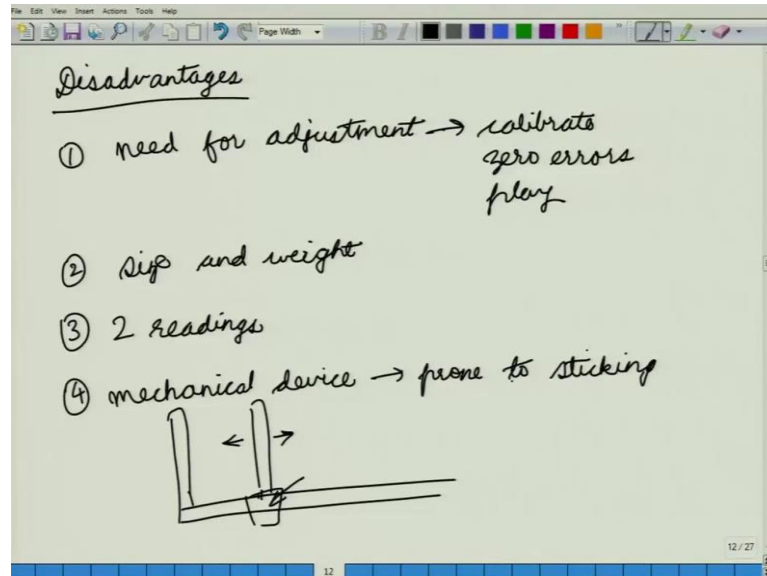 File Edit View Insert Actions Tools Help
Page Width
B I
Disadvantages
① need for adjustment → calibrate
zero errors
play
② size and weight
③ 2 readings
④ mechanical device → prone to sticking
12/27
12